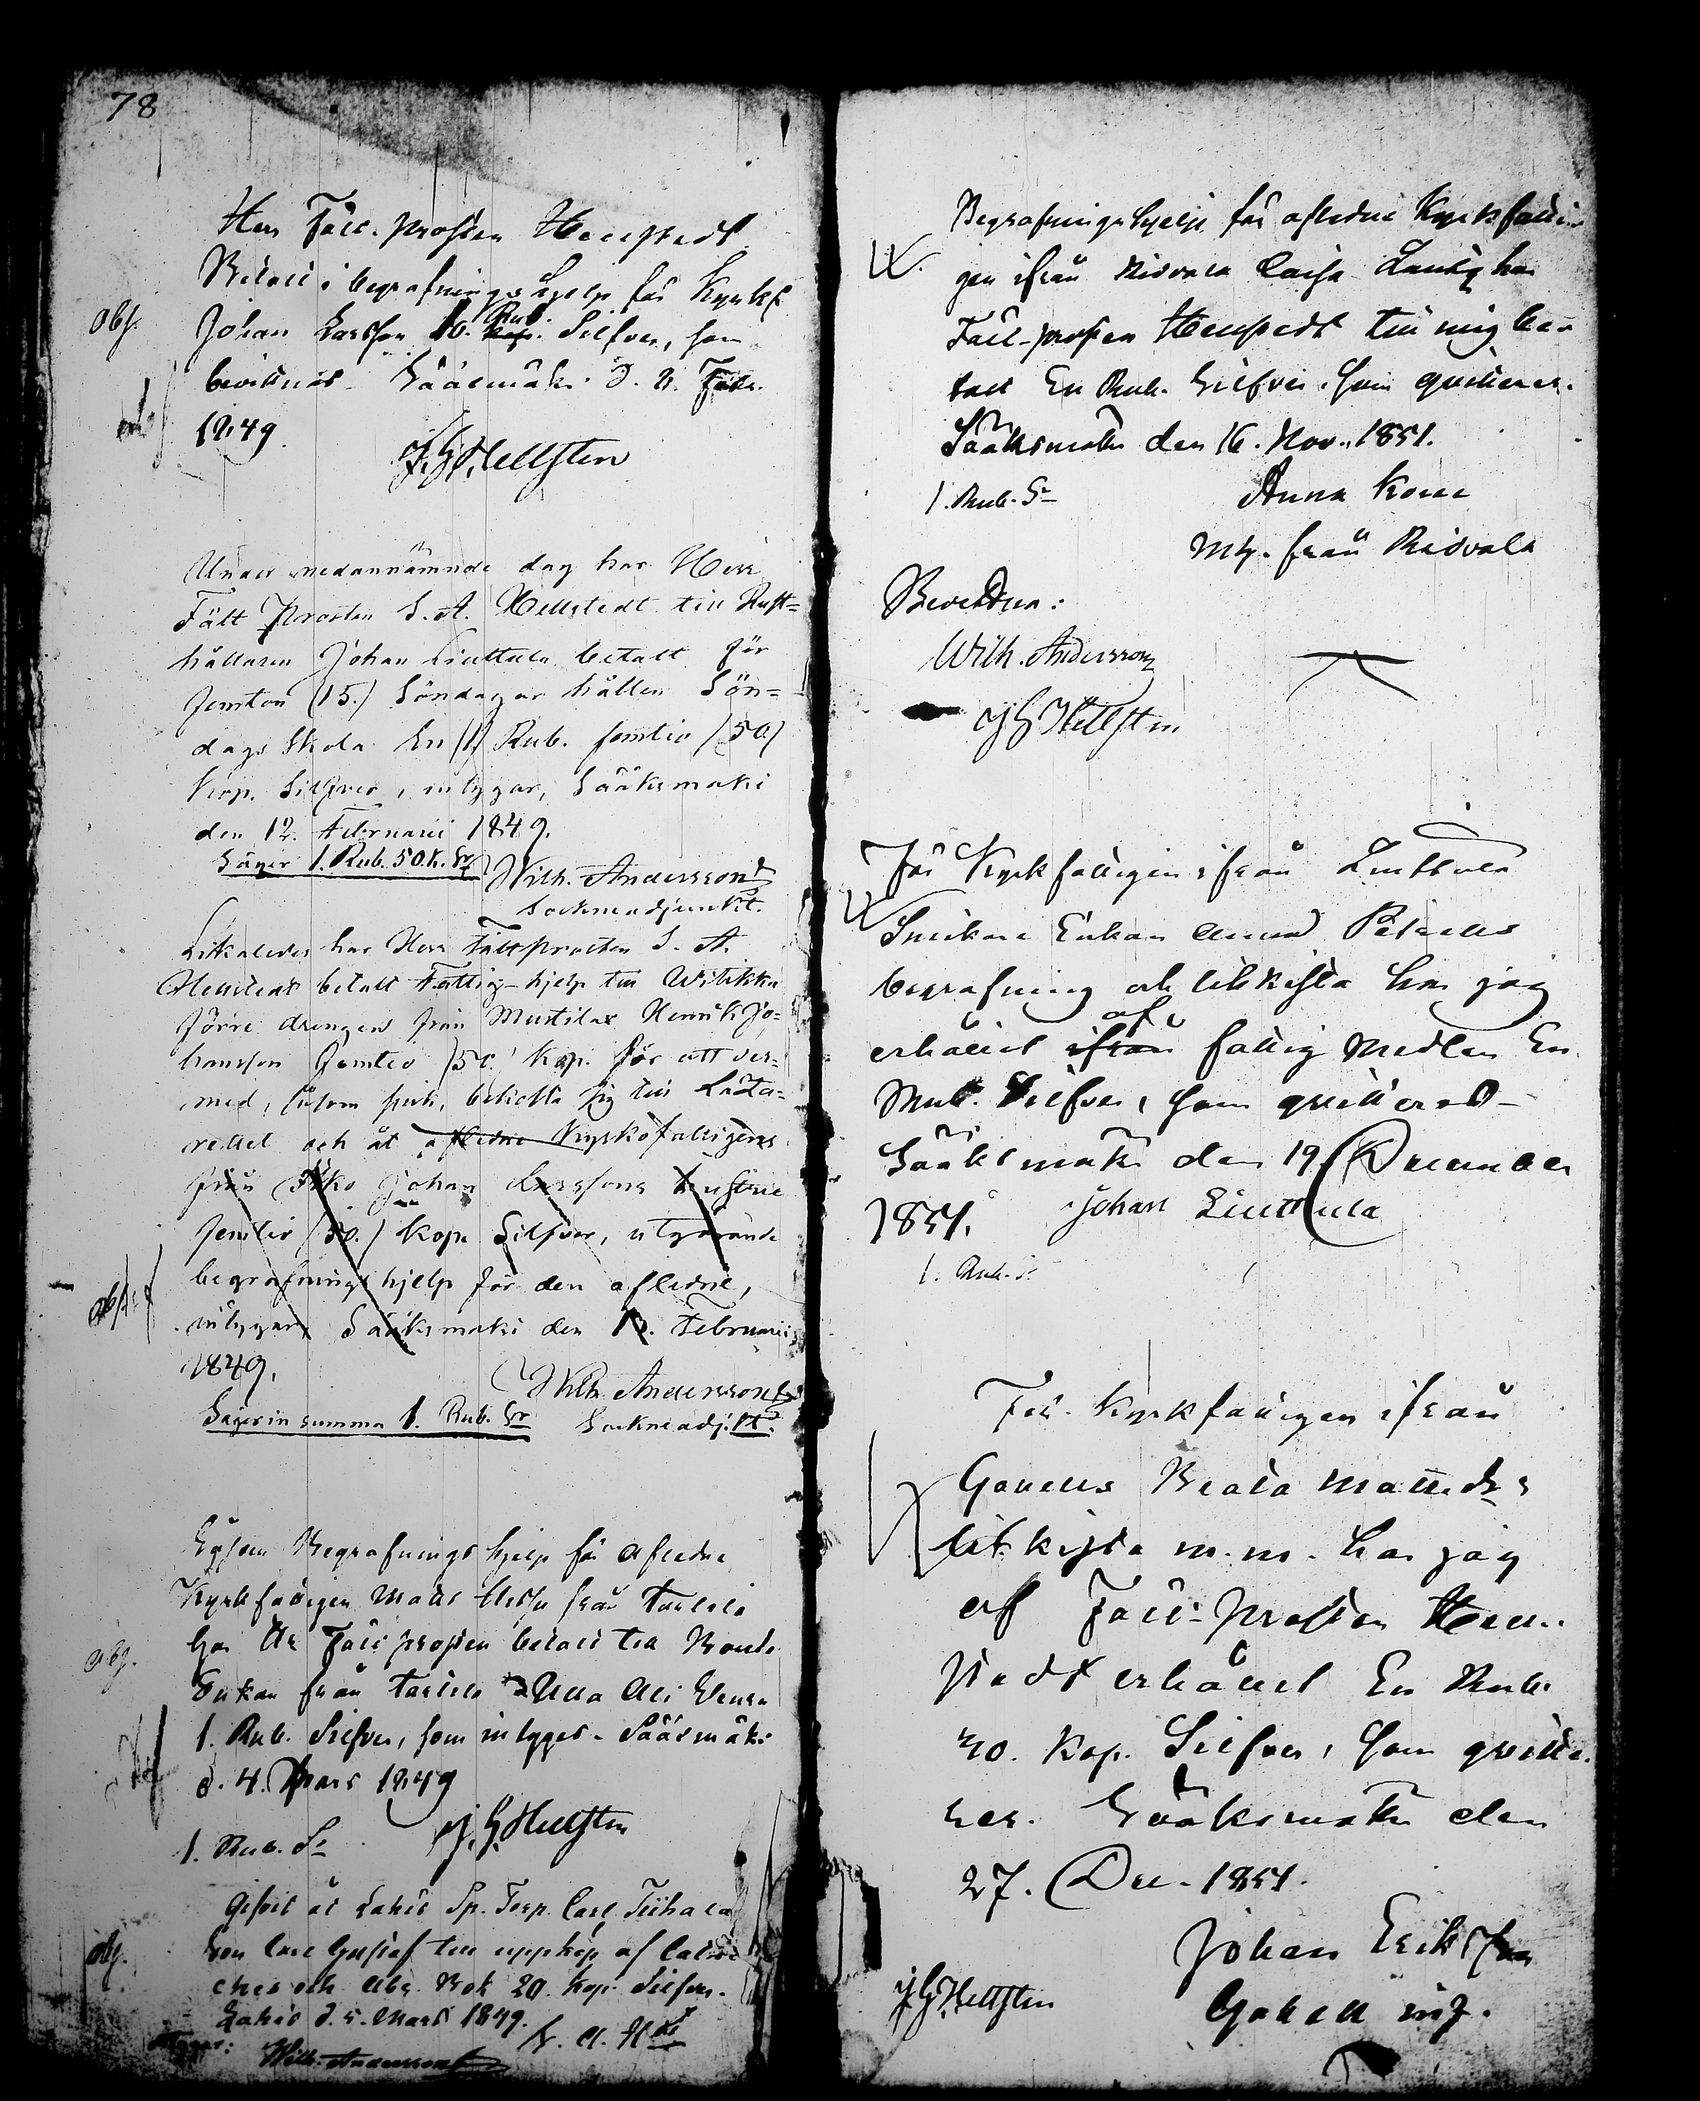 78
Herr Fält-prosten Hellstedt
Betalt i begrafningshjelp för Kyrkf.
obs.
Johan Larsson 10. Rub. Silfver, som
bevittnas. Sääksmäki d. 2. Febr.
1849.
J. G. Hellsten
Under nedannämnde dag har Herr
Fält Prosten S. A. Hellstedt till Rust-
hållaren Johan Liuttula betalt för
femton (15.) Söndagar hållen Sön-
dags Skola En (1) Rub. femtio (50)
Kop. Silfver, intygar, Sääksmäki
den 12. Februarii 1849.
Säger 1. Rub. 50. K. Sr
Wilh. Andersson
Sockneadjunkt.
Likaledes har Herr Fältprosten S. A.
Hellstedt betalt Fattig-hjelp till
förre drengen från Mustila Henrik Jo-
hansson femtio (50.) Kop. för att der-
med, såsom sjuk, bekosta sig till Laza-
rettet och åt afledne Kyrkofattigens
från Johan Larssons hustru
femtio (50.) Kop. Silfver, utgörande
begrafningshjelp för den afledne,
intygar Sääksmäki den 12. Februarii
1849.
Wilh. Andersson
Säger in summa 1. Rub. Sr
Sockneadj:kt.
Begrafningshjelp för afledne
Kyrkfattigen Matts från Tarttila
obs.
har Hr Fältprosten betalt till Bonde
Enkan från Tarttila Ulla
1. Rub. Silfver, som intygas. Sääxmäki
d. 4. Mars 1849
J. G. Hellsten
1. Rub. Sr
Gifvit åt Lahis Sp. Torp. Carl Tiihala
obs.
Son Carl Gustaf till uppköp af
och Abc Bok 20. Kop. Silfver.
Lahis d. 5. Mars 1849.
S. A. Hdt
Wilh. Andersson
Begrafningshjelp för afledne Kyrkfatti-
gen ifrån Ridvala Caisa har
Fält-prosten Hellstedt till mig be-
talt En Rub. Silfver, som quitteras.
Sääksmäki den 16. Nov. 1851.
1. Rub. Sr
Anna
från Ridvala
Bevittna:
Wilh. Andersson
J G Hellsten
För Kyrkfattigen ifrån Liuttula
Snickare Enkan Anna
begrafning och likkista har jag
erhållit ifrån af fattig Medlen En
Rub. Silfver, som quitteras
Sääksmäki den 19 December
1851.
Johan Liuttula
1. Rub. Sr
För Kyrkfattigen ifrån
Beata Mattsdrs
likkista m.m. har jag
af Fält-prosten Hell-
stedt erhållit En Rub.
20. Kop. Silfver, som quitte-
ras. Sääksmäki den
27. Dec. 1851.
Johan Eriksson
J G Hellsten